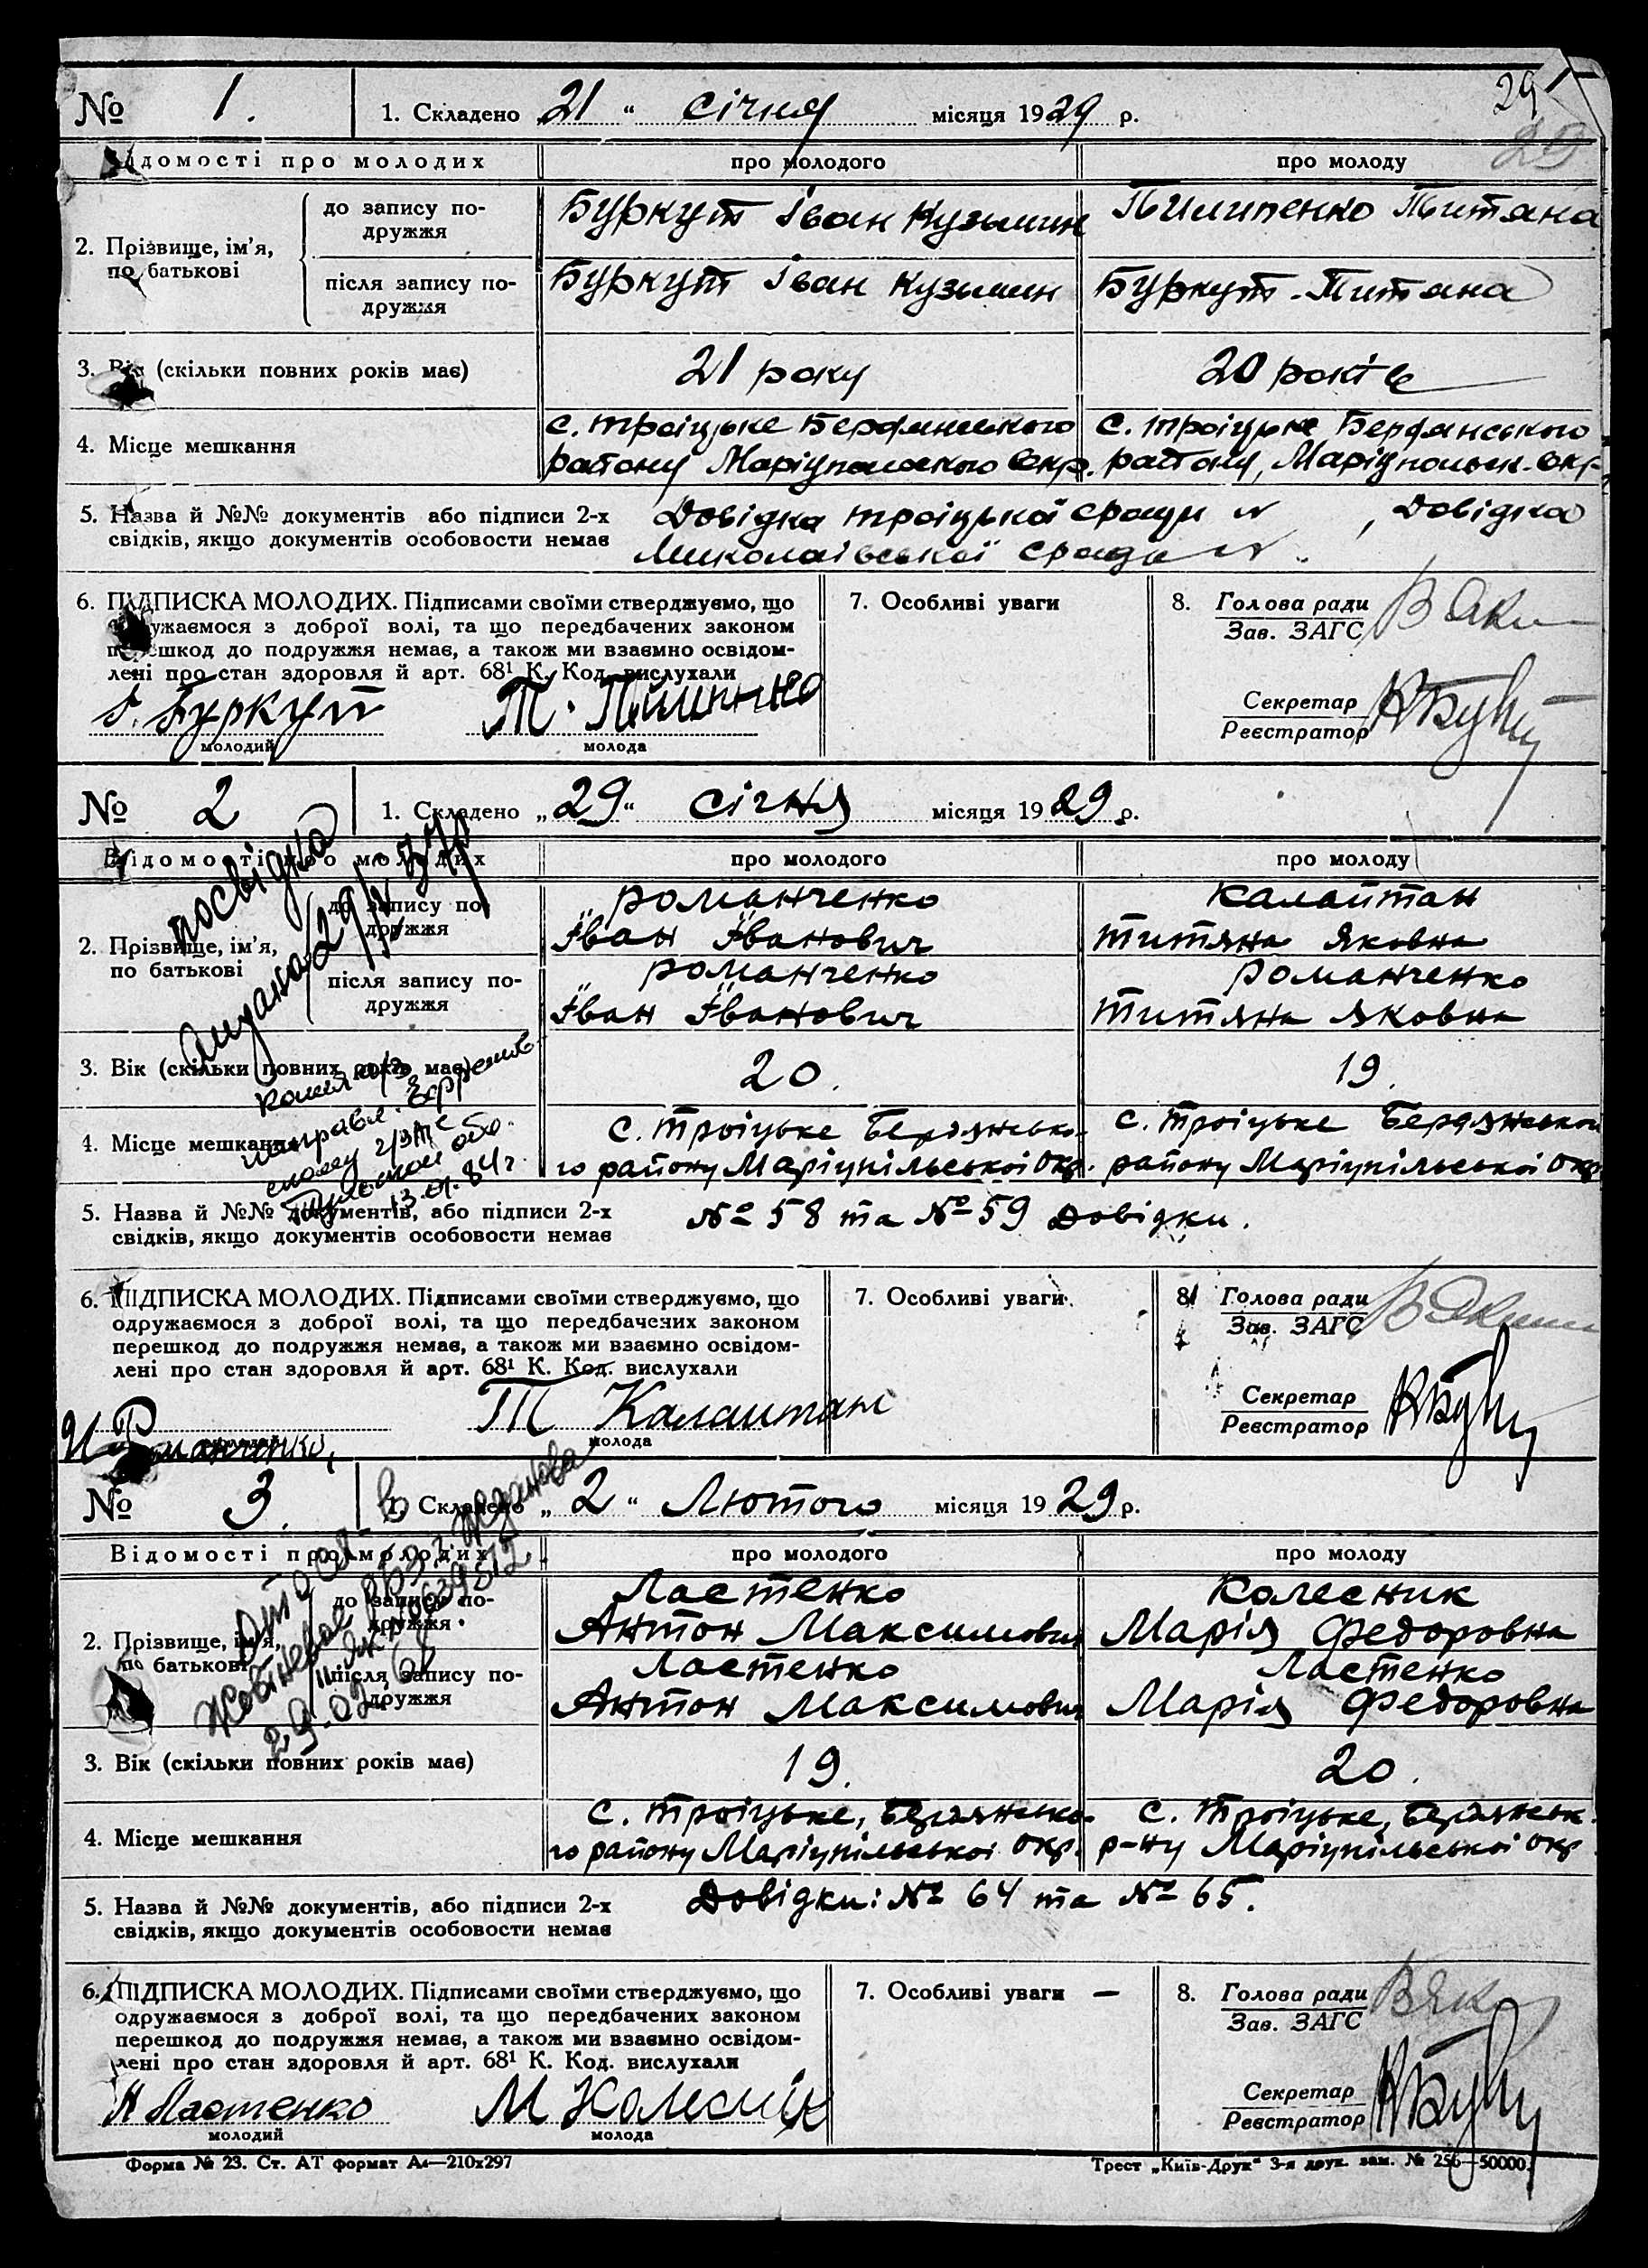 29
29
№ 1. 1. Складено „21“ січня місяця 1929 р.
Відомості про молодих про молодого про молоду
2. Прізвище, ім'я, по батькові
до запису подружжя Буркут Іван Кузьмин Пилипенко Титяна
після запису подружжя Буркут Іван Кузьмин Буркут Титяна
3. Вік (скільки повних років має) 21 року 20 років
4. Місце мешкання
с. Троіцьке Бердянського с. Троіцьке Бердянського
району Маріупольского Окр. району, Маріупольск. Окр.
5. Назва й №№ документів або підписи 2-х Довідка троіцької сради №, Довідка
свідків, якщо документів особовости немає Миколаівської сради №
6. ПІДПИСКА МОЛОДИХ. Підписами своїми стверджуємо, що
одружаємося з доброї волі, та що передбачених законом
перешкод до подружжя немає, а також ми взаємно освідом-
лені про стан здоров'я й арт. 68¹ К. Код. вислухали
І. Буркут Т. Пилипенко
молодий молода
7. Особливі уваги
8. Голова ради
Зав. ЗАГС
Секретар
Реєстратор
№ 2 1. Складено „29“ січня місяця 1929 р.
Відомості про молодих про молодого про молоду
посвідка
видана 29/IV 37р
2. Прізвище, ім'я,
по батькові
до запису по-
дружжя
Романченко Калайтан
Іван Іванович Титяна Яковна
після запису по-
дружжя
Романченко Романченко
Іван Іванович Титяна Яковна
3. Вік (скільки повних років має) 20. 19.
копия а/з
направл.
13.01.84г.
4. Місце мешкання
с. Троіцьке Бердянсько- с. Троіцьке Бердянської
го району Маріупільської Окр. району Маріупільської Окр.
5. Назва й №№ документів, або підписи 2-х № 58 та № 59 Довідки.
свідків, якщо документів особовости немає
6. ПІДПИСКА МОЛОДИХ. Підписами своїми стверджуємо, що
одружаємося з доброї волі, та що передбачених законом
перешкод до подружжя немає, а також ми взаємно освідом-
лені про стан здоровля й арт. 68¹ К. Код. вислухали
И Романченко, Т Калаитан
молодий молода
7. Особливі уваги.
8. Голова ради
Зав. ЗАГС
Секретар
Реєстратор
№ 3. 1. Складено „2“ Лютого місяця 1929 р.
Відомості про молодих про молодого про молоду
29.02.68
2. Прізвище, ім'я,
по батькові
до запису по-
дружжя
Ластенко Колесник
Антон Максимович Марія Федоровна
після запису по-
дружжя
Ластенко Ластенко
Антон Максимович Марія Федоровна
3. Вік (скільки повних років має) 19. 20.
4. Місце мешкання
с. Троіцьке, Бердянсько- с. Троіцьке, Бердянськ.
го району Маріупільської Окр. р-ну Маріупільської Окр
5. Назва й №№ документів, або підписи 2-х Довідки: № 64 та № 65.
свідків, якщо документів особовости немає
6. ПІДПИСКА МОЛОДИХ. Підписами своїми стверджуємо, що
одружаємося з доброї волі, та що передбачених законом
перешкод до подружжя немає, а також ми взаємно освідом-
лені про стан здоровля й арт. 68¹ К. Код. вислухали
А Ластенко М Колесник
молодий молода
7. Особливі уваги —
8. Голова ради
Зав. ЗАГС
Секретар
Реєстратор
Форма № 23. Ст. АТ формат А₄—210x297 Трест „Київ-Друк“ 3-я друк. зам. № 256—50000.